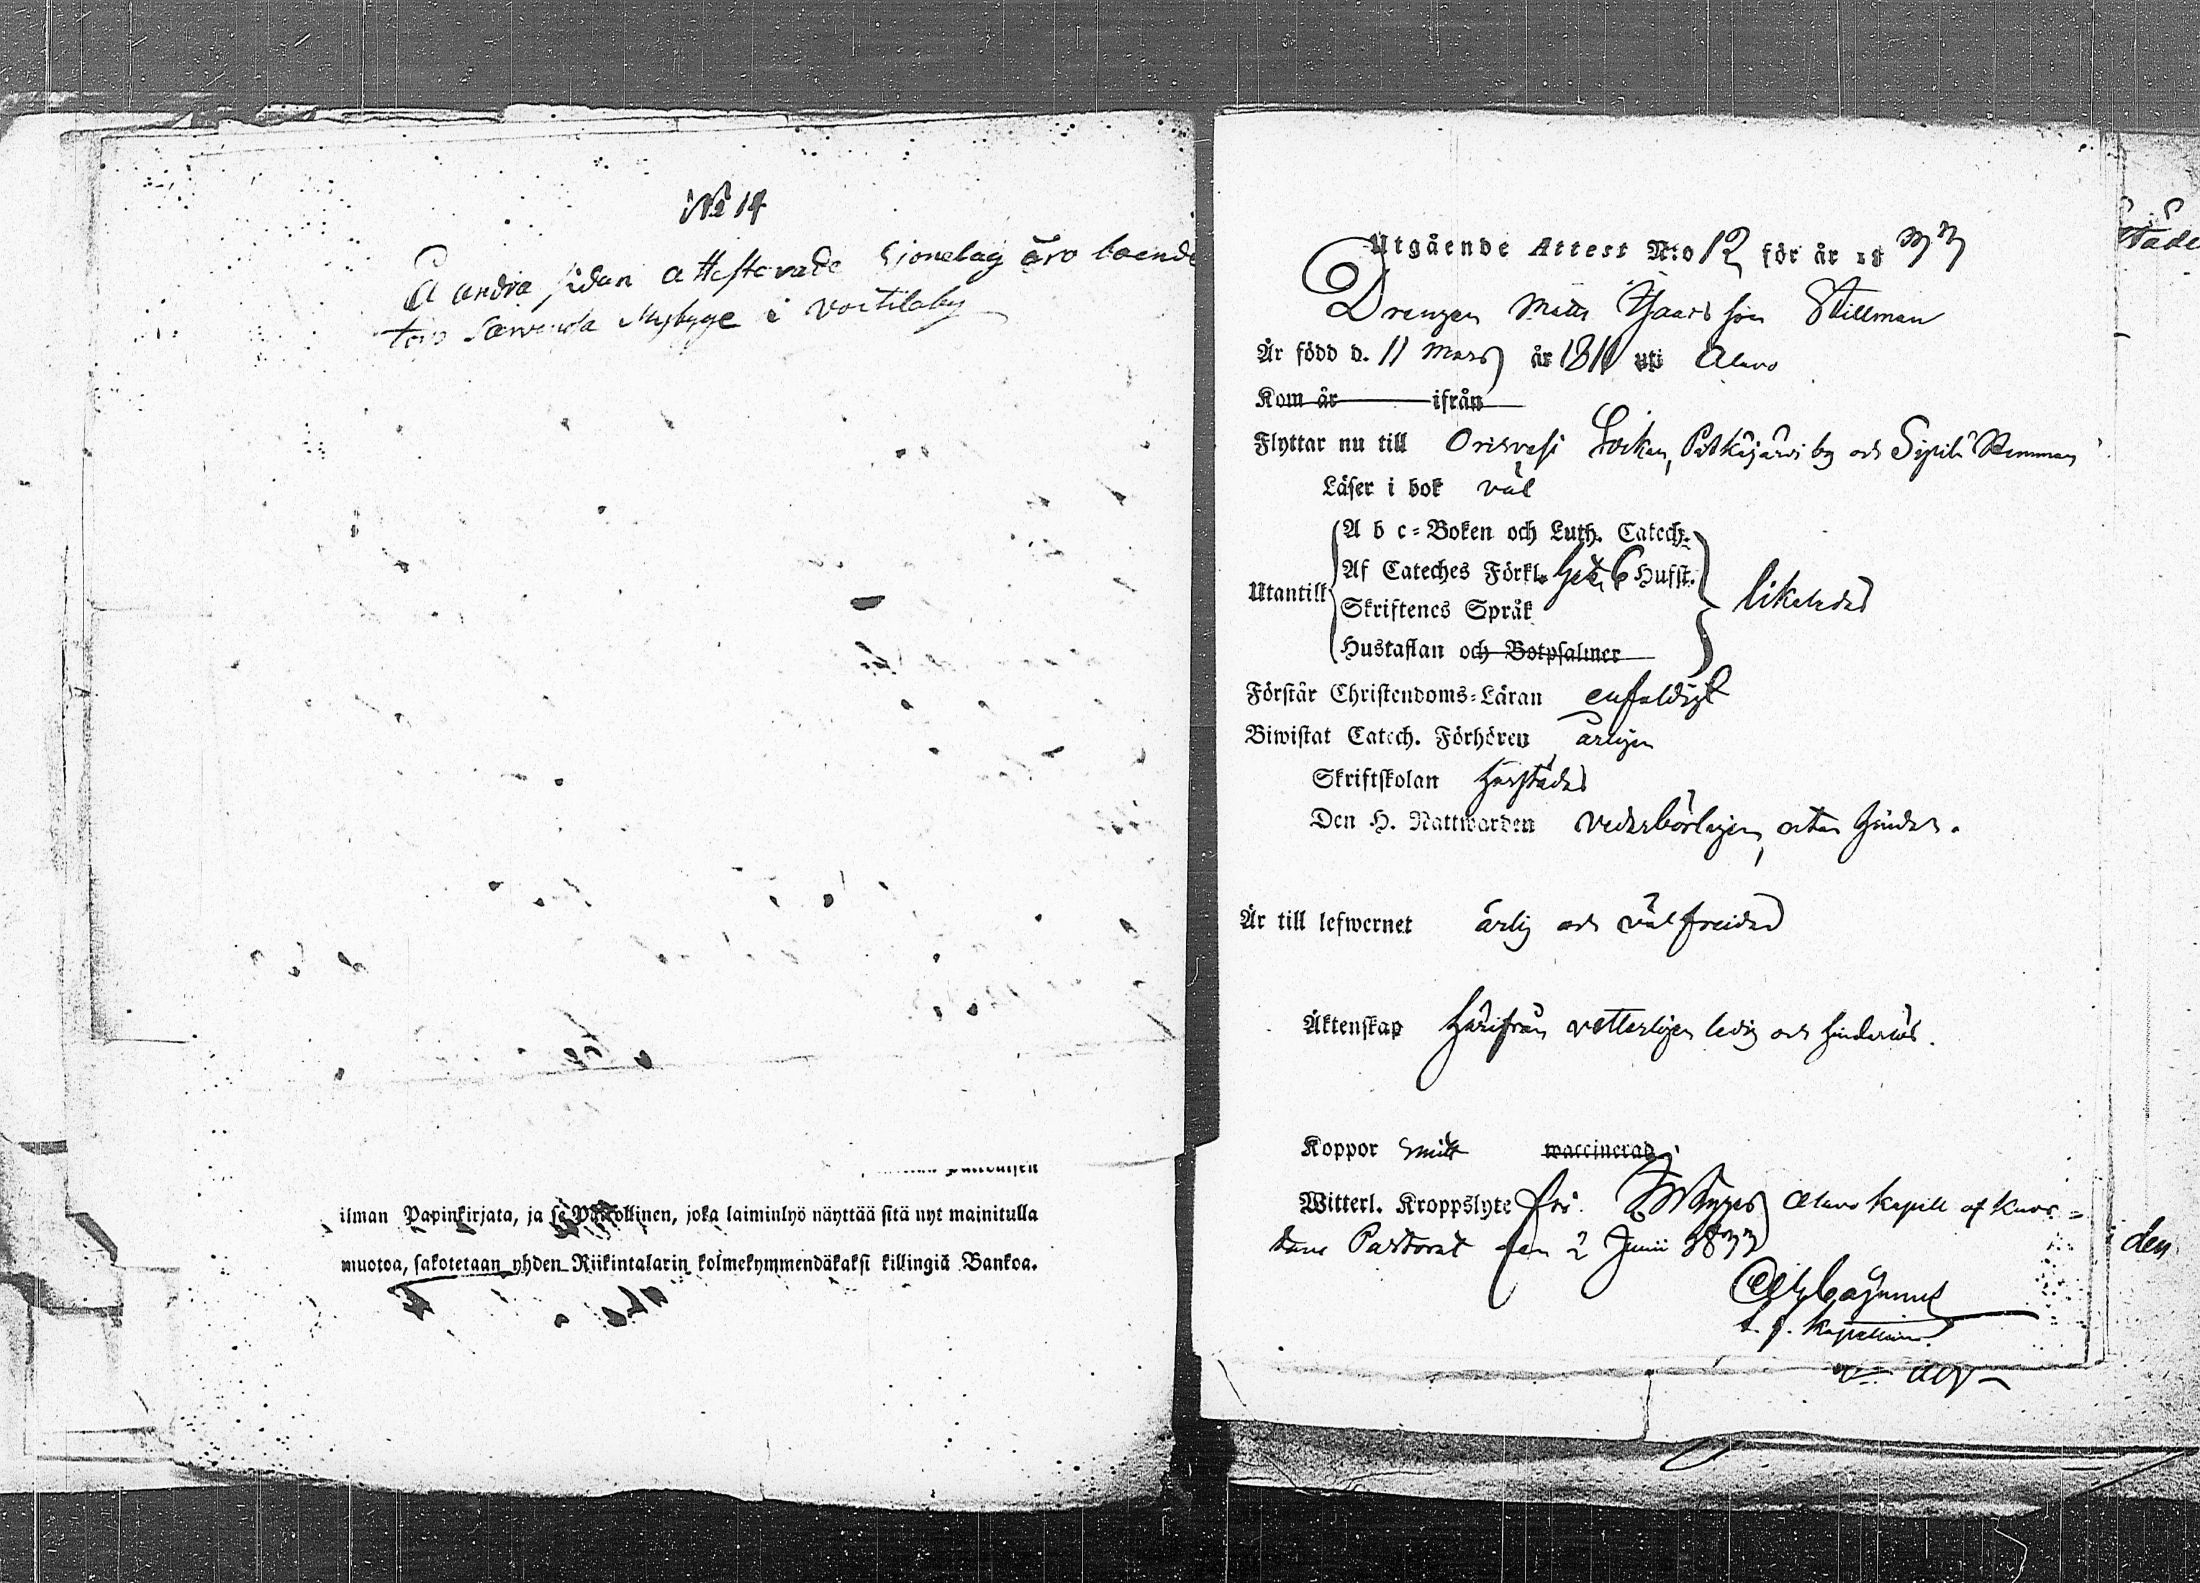 No 14
Å andra sidan attesterade Hjonelag äro boende
torp Nybygge i Voitilaby
ilman Papinkirjata, ja se Palkollinen, joka laiminlyö näyttää sitä nyt mainitulla
muotoa, sakotetaan yhden Riikintalarin kolmekymmendäkaksi killingiä Bankoa.
Utgående Attest N:o 12 för år 1833
Drengen Matts Isaacsson Stillman
Är född d. 11 Mars år 1811 uti Alavo
Kom år ifrån
Flyttar nu till Orisvesi Socken, Pitkäjärvi by och Sipilä Hemman
Läser i bok väl
Utantill
A b c-Boken och Luth. Catech.
Af Cateches Förkl. 6 Hufst.
Skriftenes Språk
Hustaflan och Botpsalmer
likaledes
Förstår Christendoms-Läran enfaldigt
Biwistat Catech. Förhören årligen
Skriftskolan härstädes
Den H. Nattwarden vederbörligen, utan hinder.
Är till lefwernet ärlig och välfreidad
Äktenskap härifrån vetterligen ledig och hinderlös.
Koppor haft waccinerad
Witterl. Kroppslyte fri. Alavo Kapell af Kuor-
tane Pastorat den 2 Junii 1833
t. f. Kapellan
den